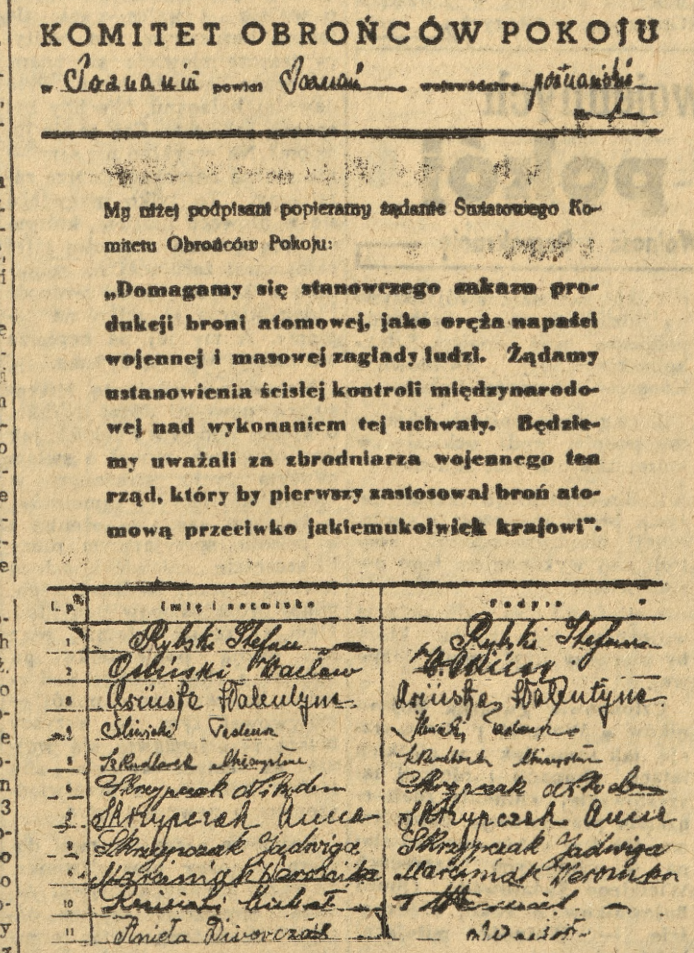 KOMITET OBROŃCÓW POKOJU
w Poznaniu powiat Poznań województwo poznańskie
My niżej podpisani popieramy żądanie Światowego Ko-
mitetu Obrońców Pokoju:
„Domagamy się stanowczego zakazu pro-
dukcji broni atomowej, jako oręża napaści
wojennej i masowej zagłady ludzi. Żądamy
ustanowienia ścisłej kontroli międzynarodo-
wej nad wykonaniem tej uchwały. Będzie-
my uważali za zbrodniarza wojennego ten
rząd, który by pierwszy zastosował broń ato-
mową przeciwko jakiemukolwiek krajowi".
l. p. Imię i nazwisko Podpis
1 Rybski Stefan Rybski Stefan
2 Osiński Wacław
3 Walentyna Walentyna
4 Śliwicki Tadeusz
5 Szkudlarek Mieczysław Szkudlarek Mieczysław
6 Skrzypczak Nikodem Skrzypczak Nikodem
7 Skrzypczak Anna Skrzypczak Anna
8 Skrzypczak Jadwiga Skrzypczak Jadwiga
9 Marciniak Weronika Marciniak Weronika
10
11 Aniela